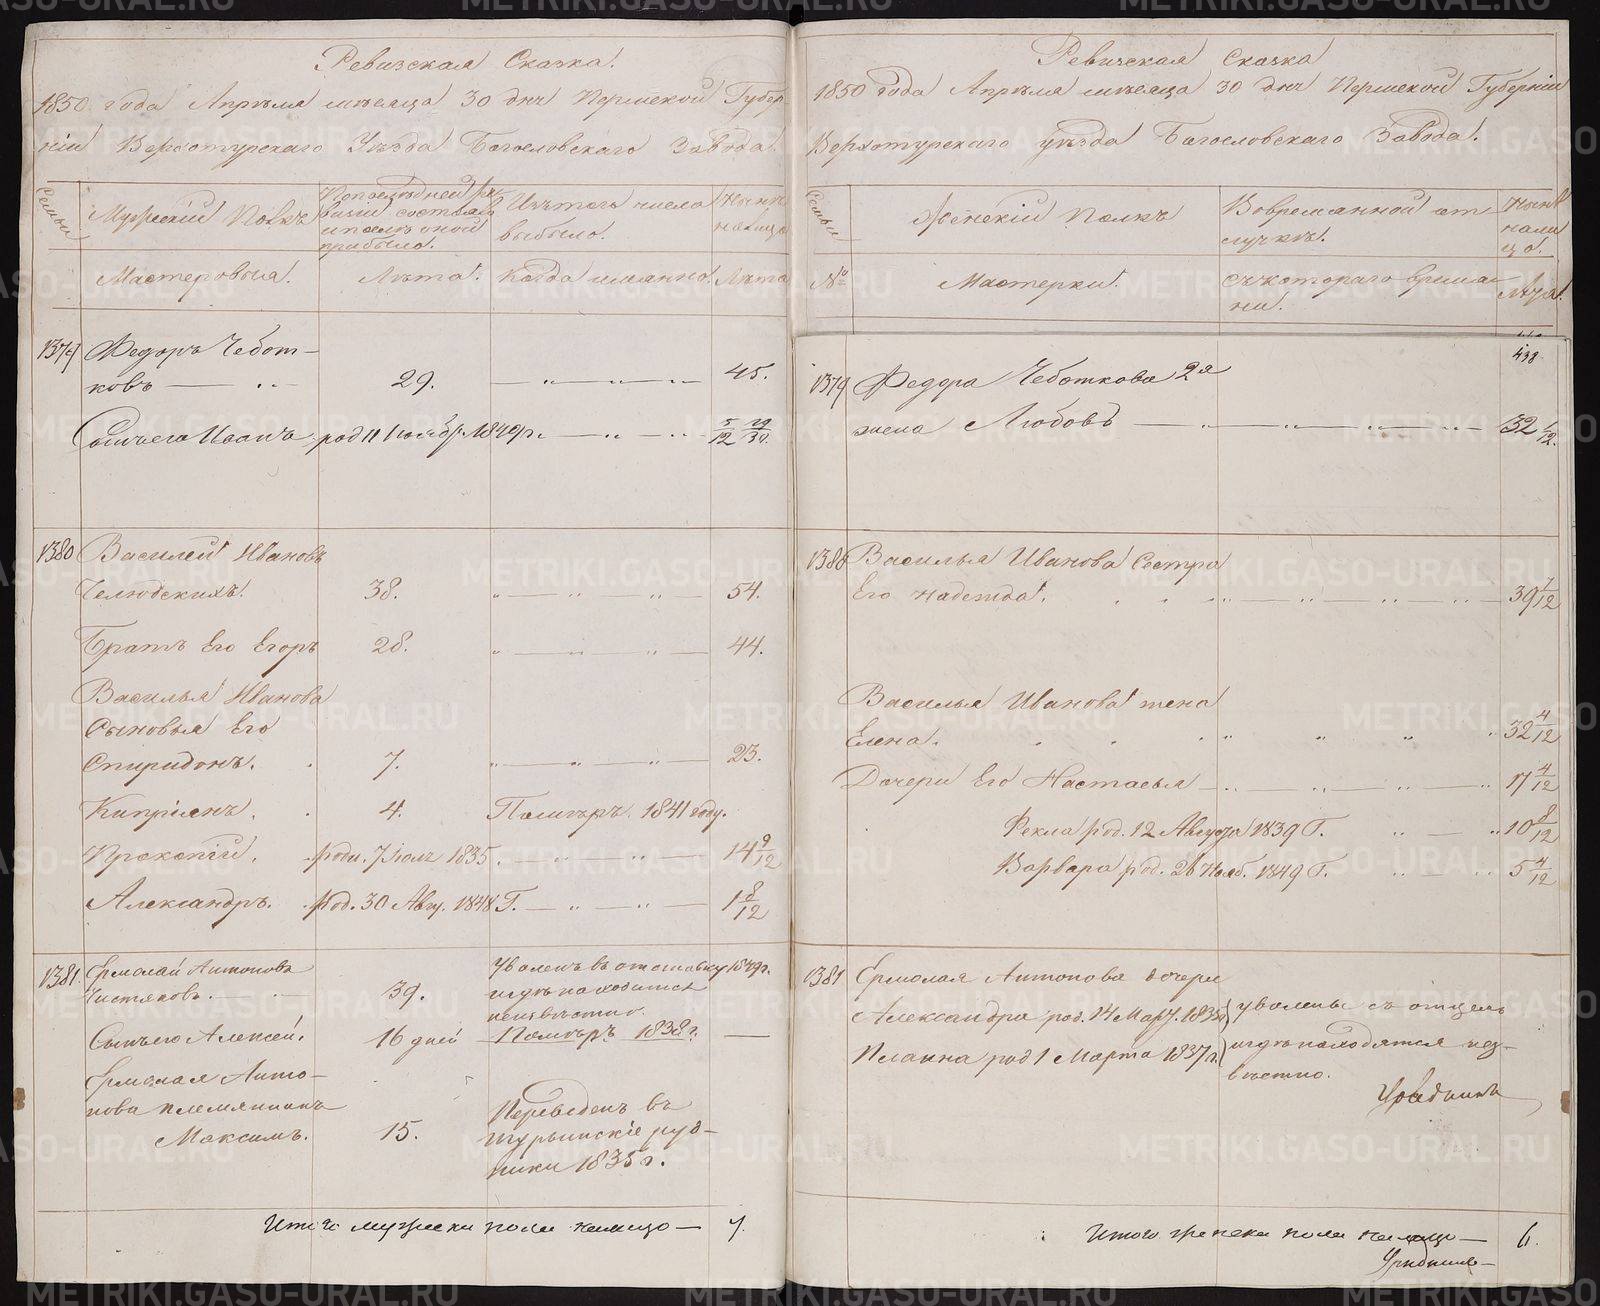 Ревизская Сказка.
1850 года Апреля месяца 30 дня Пермской Губер-
нии Верхотурскаго Уезда Богословскаго Завода.
Семьи
Мужеский Полъ
По последней ре-
визии состояло
и после оной
прибыло.
Изъ того числа
выбыло.
Ныне
на лицо
Мастеровыя.
Лета.
Когда именно.
Лета
1379
Федоръ Чебот-
ковъ
29.
45.
Сынъ его Иванъ
род 11 Ноябр. 1849 г.
5/12 29/30.
1380
Василей Ивановъ
Челюдскихъ.
38.
54.
Братъ Его Егоръ
28.
44.
Василья Иванова
Сыновья Его
Спиридонъ.
7.
23.
Киприянъ.
4.
Помѣръ 1841 году.
Прокопий.
роди. 7 Іюля 1835.
14 9/12
Александръ.
род. 30 Авгу. 1848 Г.
1 8/12
1381.
Ермолай Антоновъ
Чистяковъ.
39.
Уволенъ въ отставку 1849 г.
и где находится
неизвестно.
Сынъ его Алексей.
16 дней
Помѣръ 1838 г.
Ермолая Анто-
нова племянникъ
Максимъ.
15.
Переведенъ въ
Турьинскіе руд-
ники 1835 г.
Итого мужеска пола налицо
7.
Ревизская Сказка
1850 года Апреля месяца 30 дня Пермской Губернии
Верхотурскаго уезда Богословскаго Завода.
Семьи
Женский Полъ
Во временной от-
лучке.
Ныне
на ли
цо.
№
Мастерки.
Съ котораго време-
ни.
Лета.
438.
1379
Федора Чеботкова 2я
жена Любовь
32 1/12.
1380
Василья Иванова Сестра
Его Надежда.
39 7/12
Василья Иванова жена
Елена.
32 4/12
Дочери Его Настасья
17 4/12
Фекла род. 12 Августа 1839 Г.
10 8/12
Варвара род. 26 Нояб. 1849 Г.
5 4/12
1381
Ермолая Антонова дочери
Александра род. 14 Март. 1835
уволены съ отцемъ
род 1 Марта 1837 г.
и где находятся неиз-
вестно.
Урядникъ
Итого женска пола налицо
6.
Урядникъ